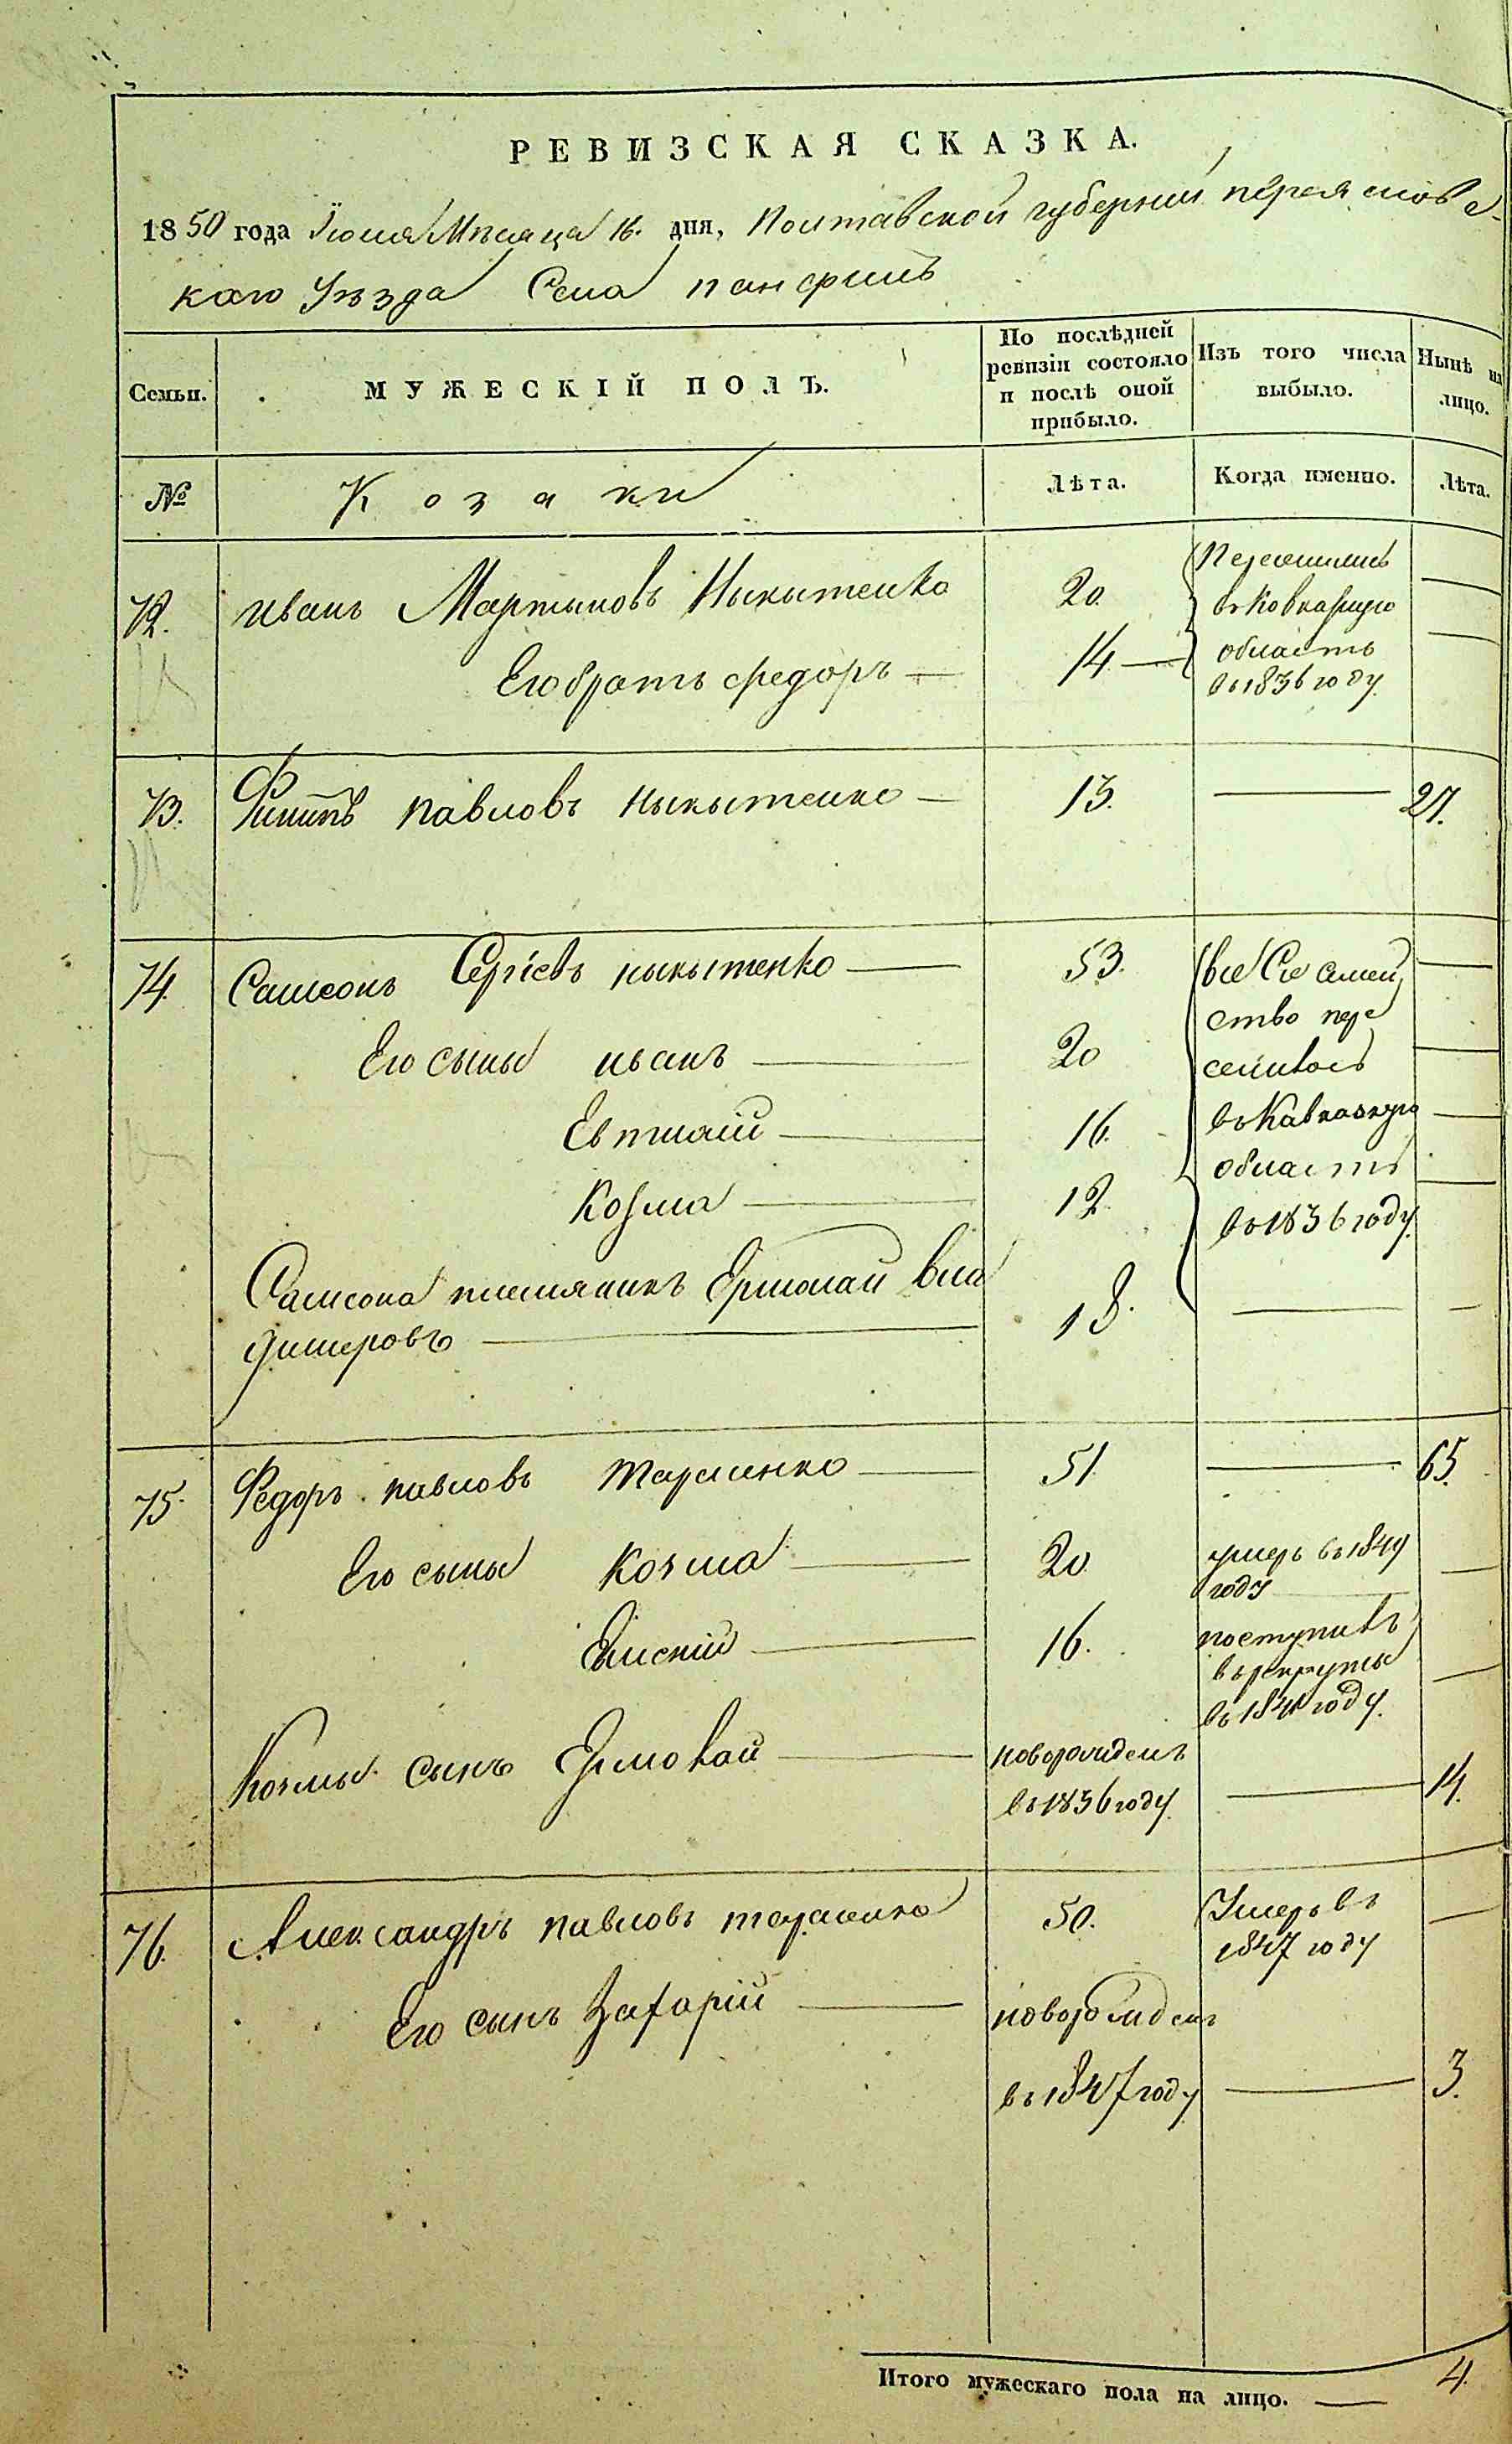 РЕВИЗСКАЯ СКАЗКА.
1850 года Іюня Мѣсяца 16. дня, Полтавской губерніи переясловс-
каго Уѣзда Села панфилъ
Семьи.
МУЖЕСКІЙ ПОЛЪ.
По послѣдней
ревизіи состояло
и послѣ оной
прибыло.
Изъ того числа
выбыло.
Нынѣ на
лицо.
№
Козаки
Лѣта.
Когда именно.
Лѣта.
72. иванъ Мартыновъ Ныкытенко 20. Переселились
въ Ковказкую
Его братъ федоръ — 14 — область
въ 1836 году.
73. Филипъ павловъ ныкытенко — 13. — 27.
74. Самсонъ Сергіевъ ныкытенко — 53. все Сіе семей —
ство пере
Его сыны иванъ — 20 селилось —
Евтихій — 16. въ Кавказкую —
область
Козма — 12. въ 1836 году. —
Самсона племяникъ Ермолай вла 18. — —
димеровъ —
75. Федоръ павловъ тарасенко — 51 — 65.
Его сыны Козма — 20 умеръ въ 1849 —
году
16. поступилъ —
в рекруты
въ 1841 году.
Козмы сынъ Ермолай — новорожденъ — 14.
въ 1836 году
76. Александръ павловъ тарасенко 50. Умеръ въ —
1847 году
Его сынъ Захарій — новорожденъ
въ 1847 году — 3.
Итого мужескаго пола на лицо. — 4.